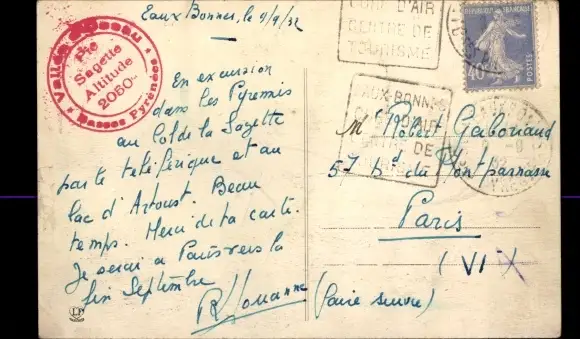 Eaux Bonnes, le 9/9/32
Vallée d'Ossau
Pic
Sagette
Altitude
2050m
Basses Pyrénées
En excursion
dans les Pyrénées
au Col de la Sagette
par le téléférique et au
lac d'Artoust. Beau
temps. Merci de ta carte.
Je serai à Paris vers la
fin Septembre
(faire suivre)
D'AIR
CENTRE DE
TOURISME
EAUX-BONNES
CENTRE DE
40c
POSTES
Mr Robert Gaboriaud
57 Bd du Montparnasse
Paris
(VI
LP